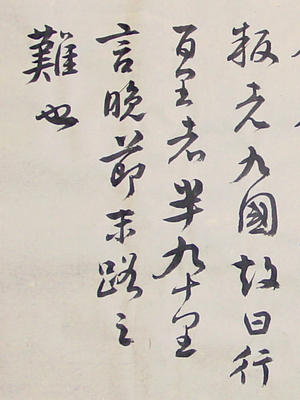 叛者九國故曰行
百里者半九十里
言晚節末路之
難也